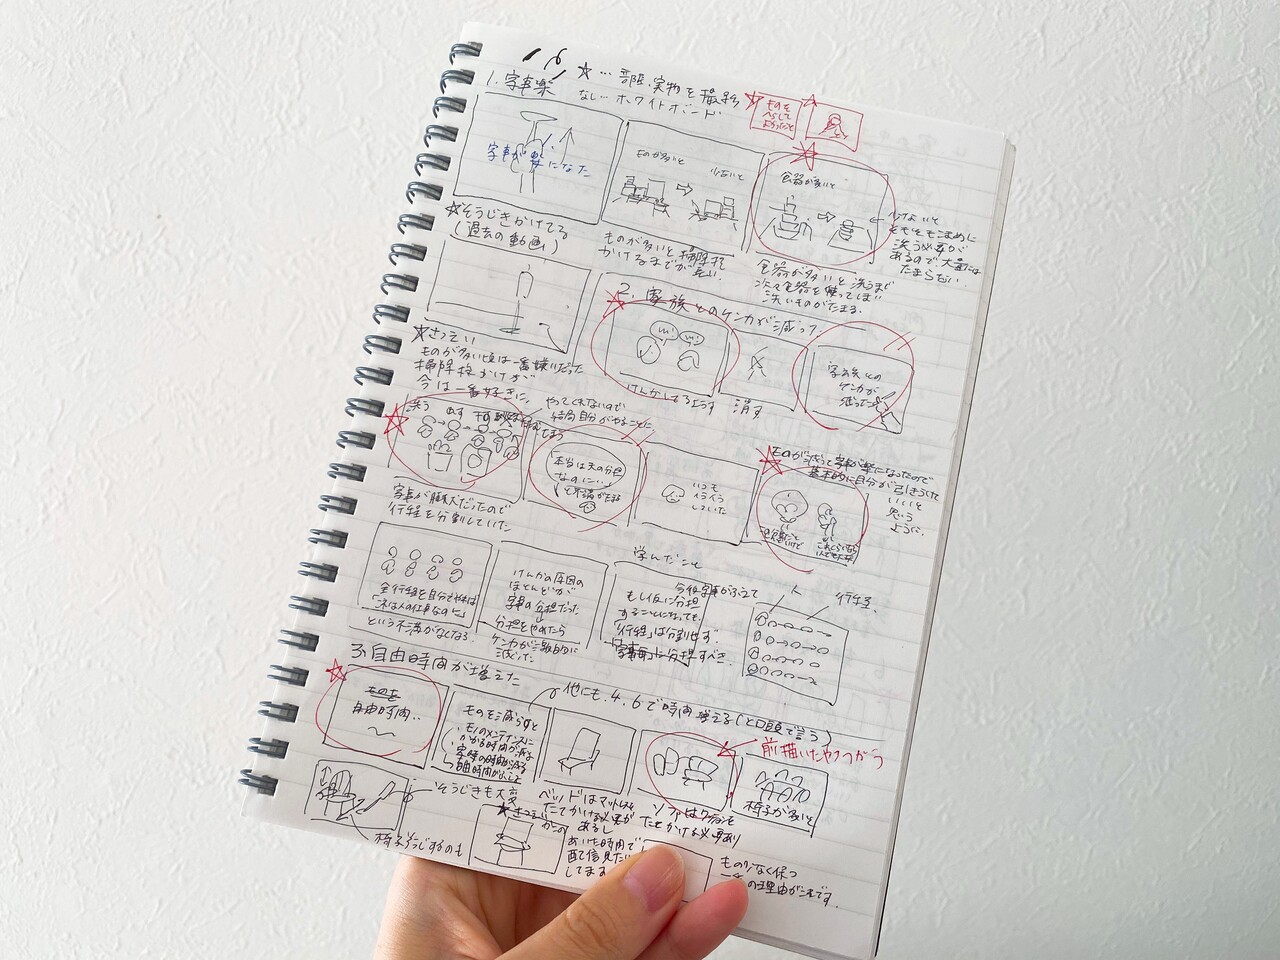 16
☆…部屋、実物を撮影
なし…ホワイトボード
ものを
へらして
よかったこと
1. 家事楽
家事が楽になった
☆そうじきかけてる
(過去の動画)
ものが多いと
少ないと
ものが多いと掃除機
かけるまでが
食器が多いと
少ないと
そもそもこまめに
洗う必要が
あるので大量には
たまらない.
食器が多いと洗うまで
次々食器を使ってしまい
洗いものがたまる.
☆さつえい
ものが多い頃は一番嫌いだった
掃除機かけが
今は一番好きに.
2. 家族とのケンカが減った
けんかしてるようす
消す
家族との
ケンカが
減った
洗う
干す
家事が膨大だったので
行程を分割していた
やってくれないので
結局自分がやることに
本当は夫の分担
なのに…
と不満がたまる
いつも
イライラ
していた
ものが減って家事が楽になったので
基本的に自分が引きうけて
いいと
思う
ように.
全行程を自分でやれば
「これは人の仕事なのに」
という不満がなくなる.
けんかの原因の
ほとんどが
家事の分担だった
分担をやめたら
ケンカが
減った
学んだこと
今後家事がふえて
もし仮に分担
することになっても,
「行程」は分割せず,
分担すべき.
人
行程
3. 自由時間が増えた
自由時間..
ものを減らすと
モノのメンテナンスに
かかる時間が減る
家事の時間が減る
自由時間が
他にも、4、6で時間増える(と口頭で言う)
前描いたやつつかう
ベッドはマットレスを
たてかける必要が
あるし
ソファはクッションを
たてかける必要あり
椅子が多いと
そうじきも大変
椅子そうじするのも
あいた時間で
配信見たり
してます
ものを少なく保つ
の理由がこれです.